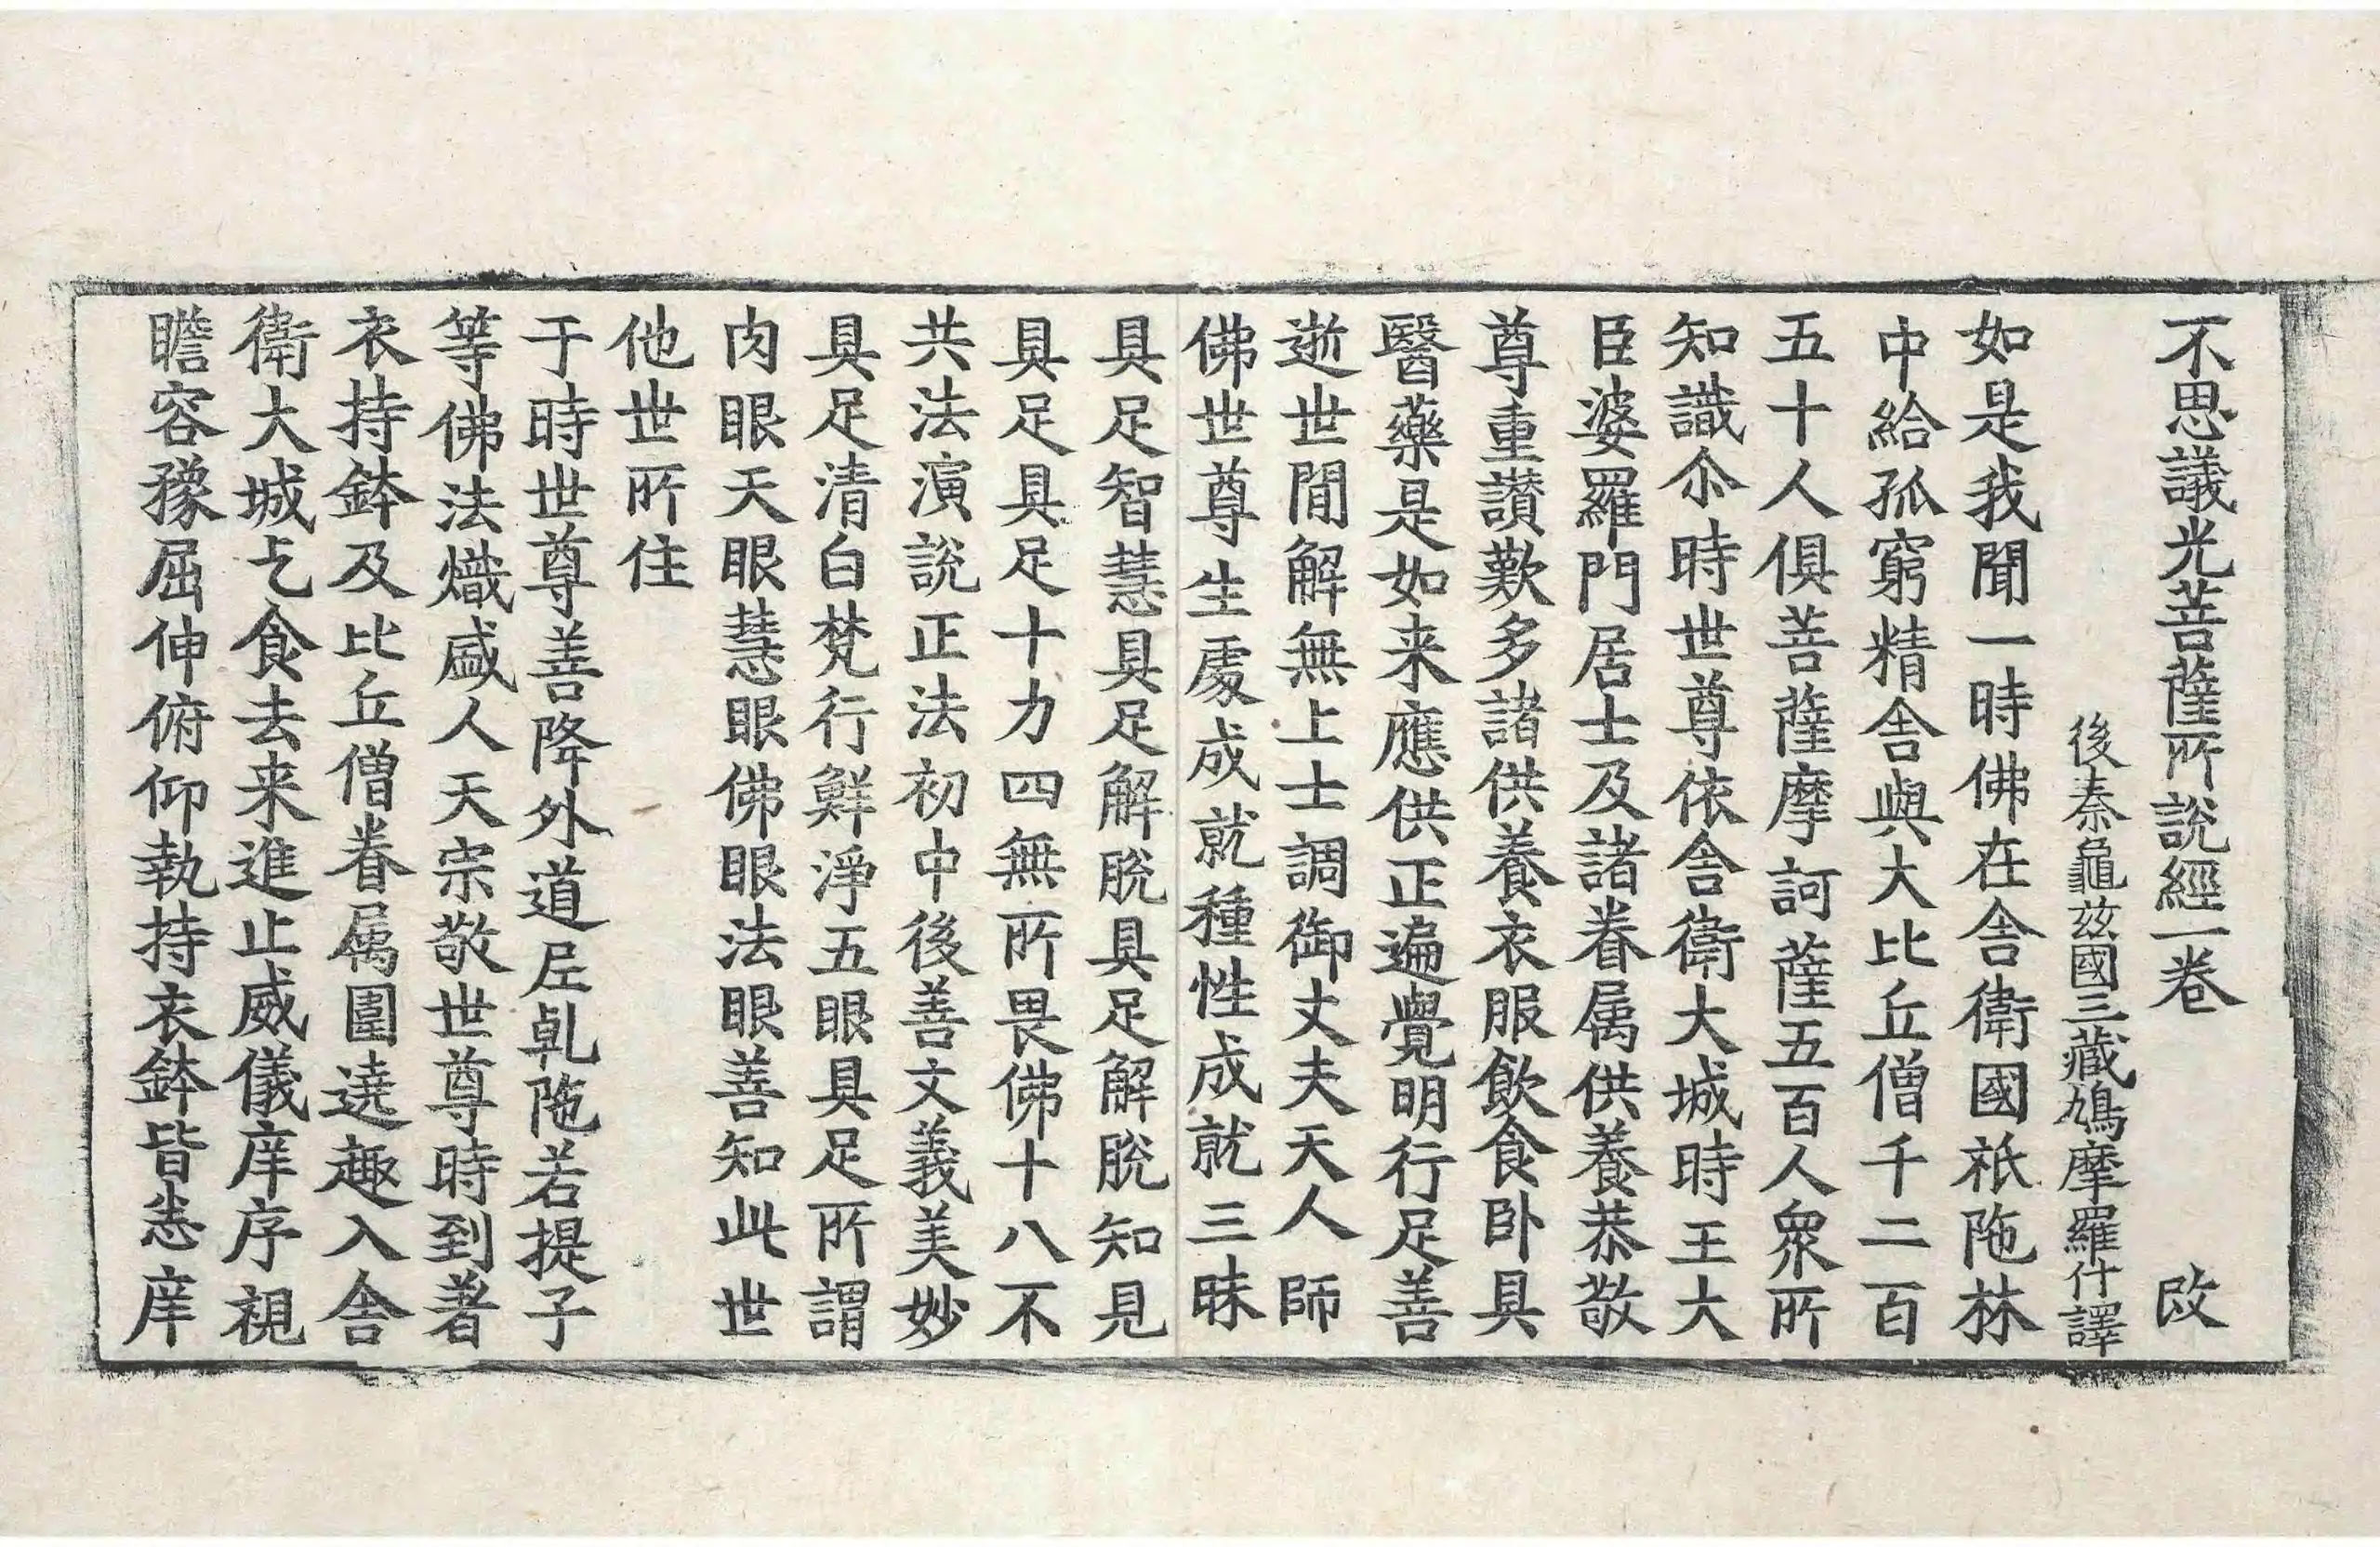 不思議光菩薩所說經一卷 改
後秦龜茲國三藏鳩摩羅什譯
如是我聞一時佛在舍衛國祇陁林
中給孤窮精舍與大比丘僧千二百
五十人俱菩薩摩訶薩五百人衆所
知識尒時世尊依舍衛大城時王大
臣婆羅門居士及諸眷属供養恭敬
尊重讃歎多諸供養衣服飲食卧具
醫藥是如来應供正遍覺明行足善
逝世間解無上士調御丈夫天人師
佛世尊生處成就種性成就三昧
具足智慧具足解脫具足解脫知見
具足具足十力四無所畏佛十八不
共法演說正法初中後善文義美妙
具足清白梵行鮮淨五眼具足所謂
肉眼天眼慧眼佛眼法眼善知此世
他世所住
于時世尊善降外道𡰱乹陁若提子
等佛法熾盛人天宗敬世尊時到著
衣持鉢及比丘僧眷属圍遶趣入舍
衛大城乞食去来進止威儀庠序視
瞻容豫屈伸俯仰執持衣鉢皆悉庠